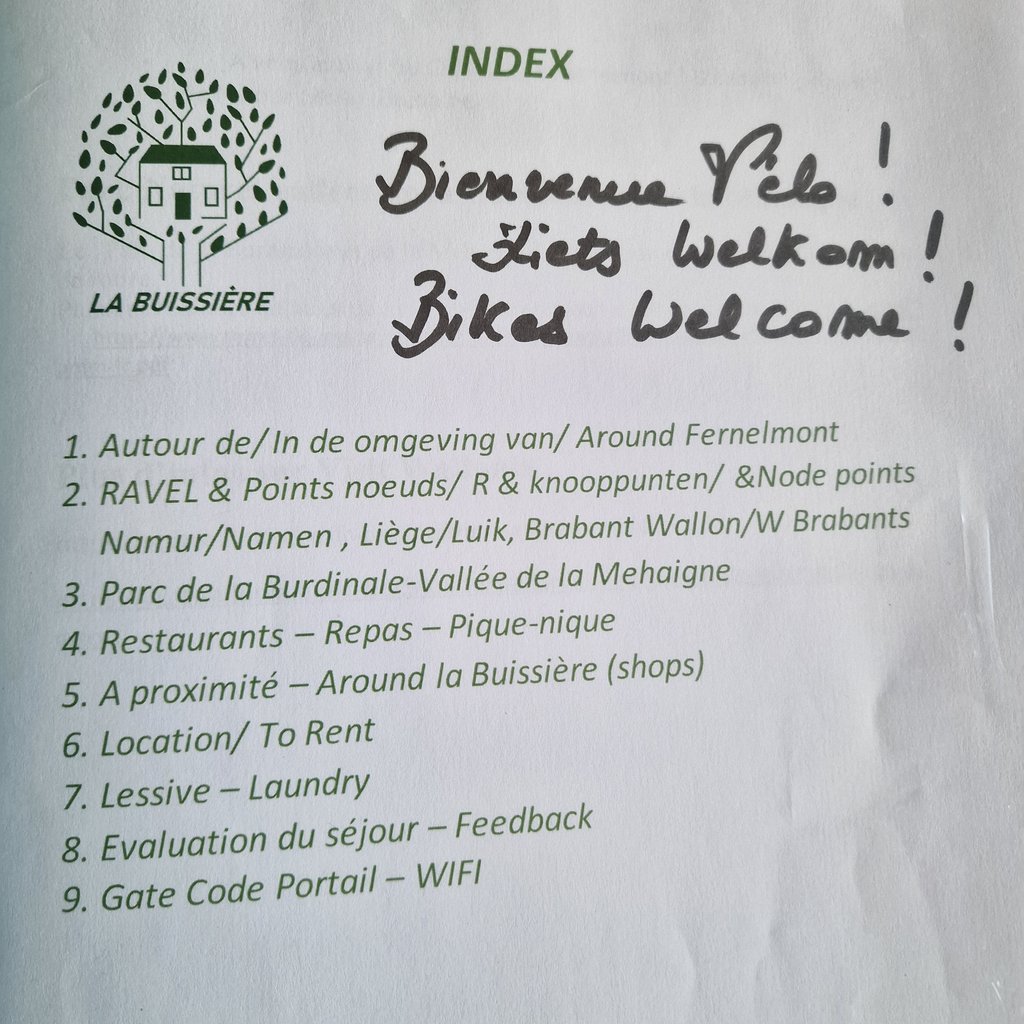 INDEX
LA BUISSIÈRE
Bienvenue Vélo !
Fiets Welkom !
Bikes Welcome !
1. Autour de/ In de omgeving van/ Around Fernelmont
2. RAVEL & Points noeuds/ R & knooppunten/ &Node points
Namur/Namen , Liège/Luik, Brabant Wallon/W Brabants
3. Parc de la Burdinale-Vallée de la Mehaigne
4. Restaurants – Repas – Pique-nique
5. A proximité – Around la Buissière (shops)
6. Location/ To Rent
7. Lessive – Laundry
8. Evaluation du séjour – Feedback
9. Gate Code Portail – WIFI